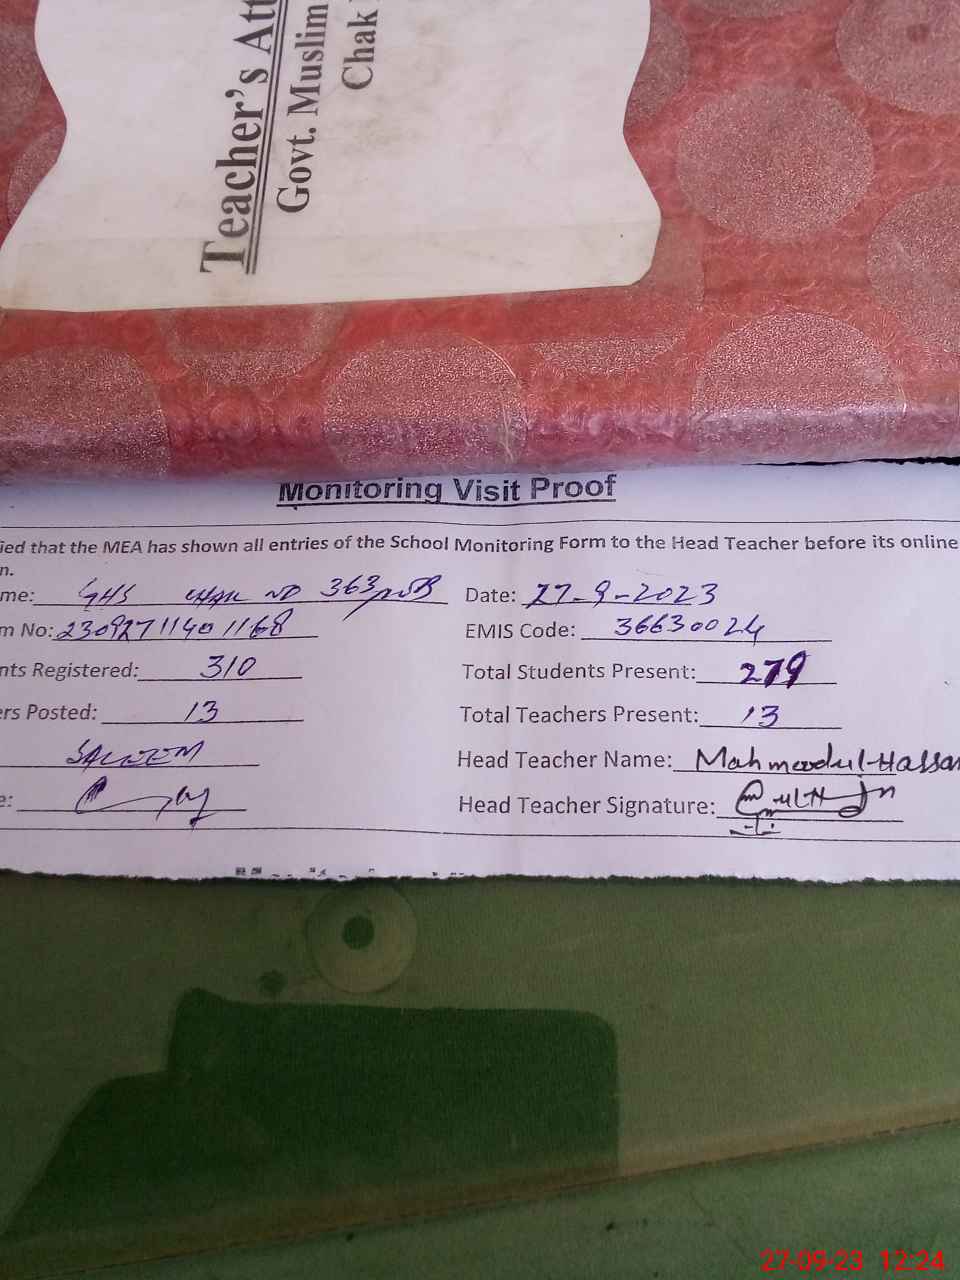 Teacher's Att
Govt. Muslim
Chak
Monitoring Visit Proof
ied that the MEA has shown all entries of the School Monitoring Form to the Head Teacher before its online
n.
me: GHS CHAK NO 363/WB Date: 27-9-2023
m No: 23092711401168 EMIS Code: 36630024
nts Registered: 310 Total Students Present: 279
ers Posted: 13 Total Teachers Present: 13
SALEEM Head Teacher Name: Mahmoodul-Hassan
e: Head Teacher Signature:
27-09-23 12:24